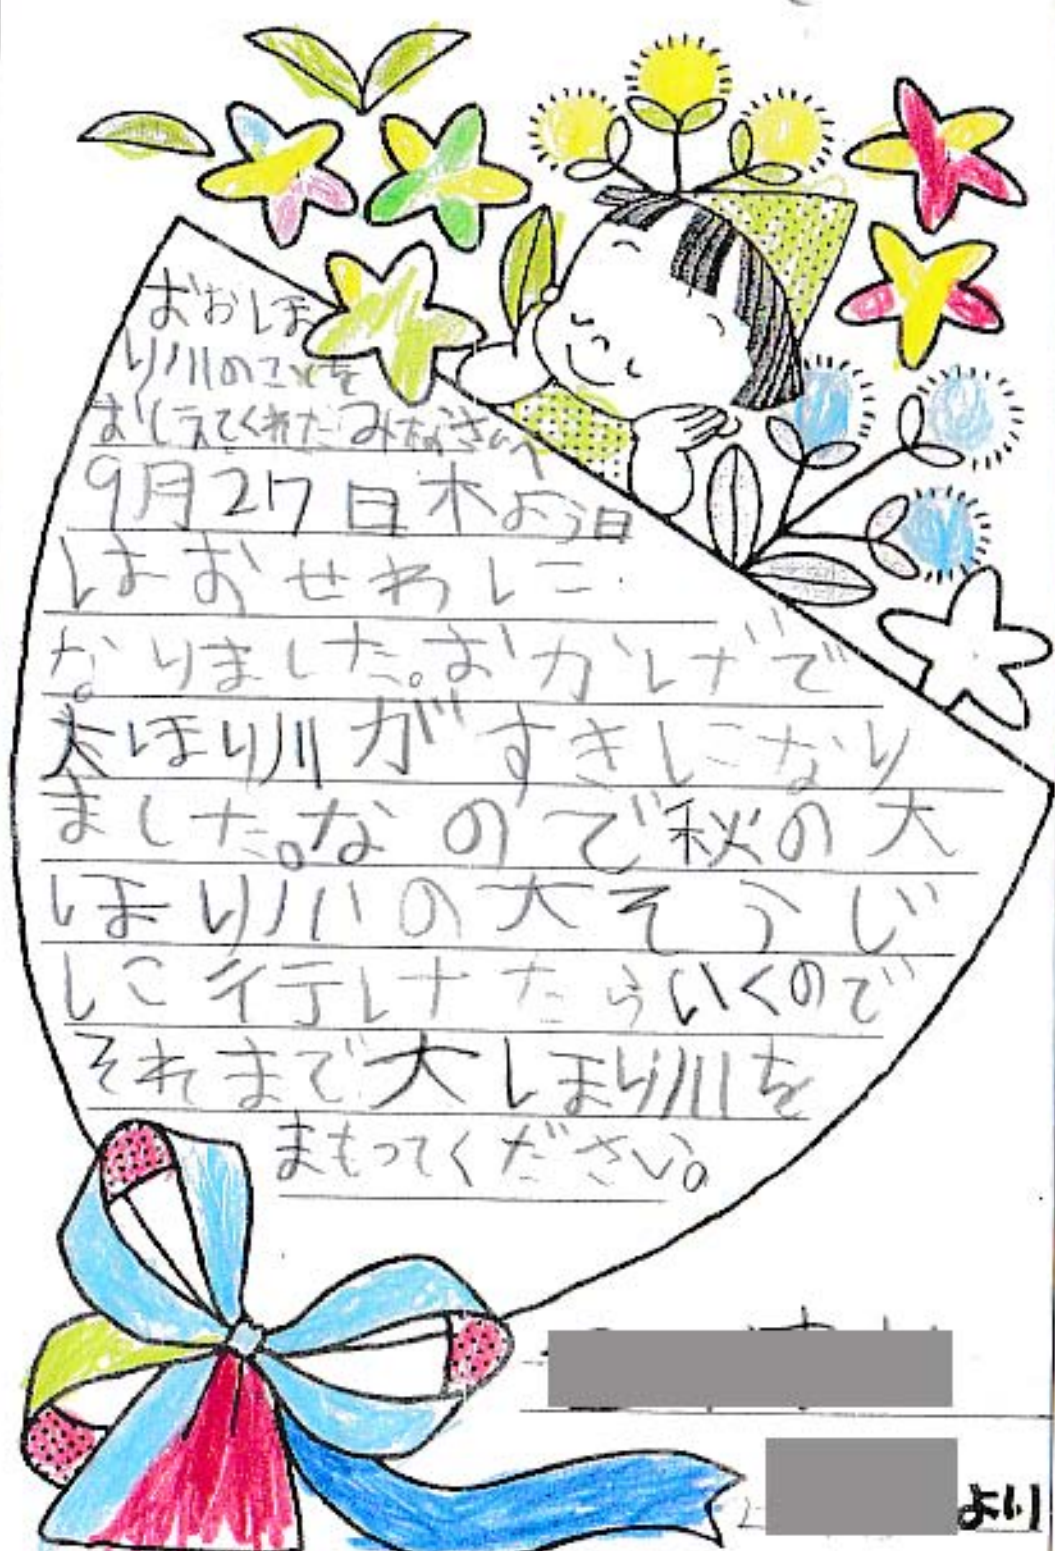 おおほ
り川のことを
おしえてくれたみなさんへ
9月27日木よう日
はおせわに
なりました。おかげで
大ほり川がすきになり
ました。なので秋の大
ほり川の大そうじ
に行けたらいくので
それまで大ほり川を
まもってください。
より